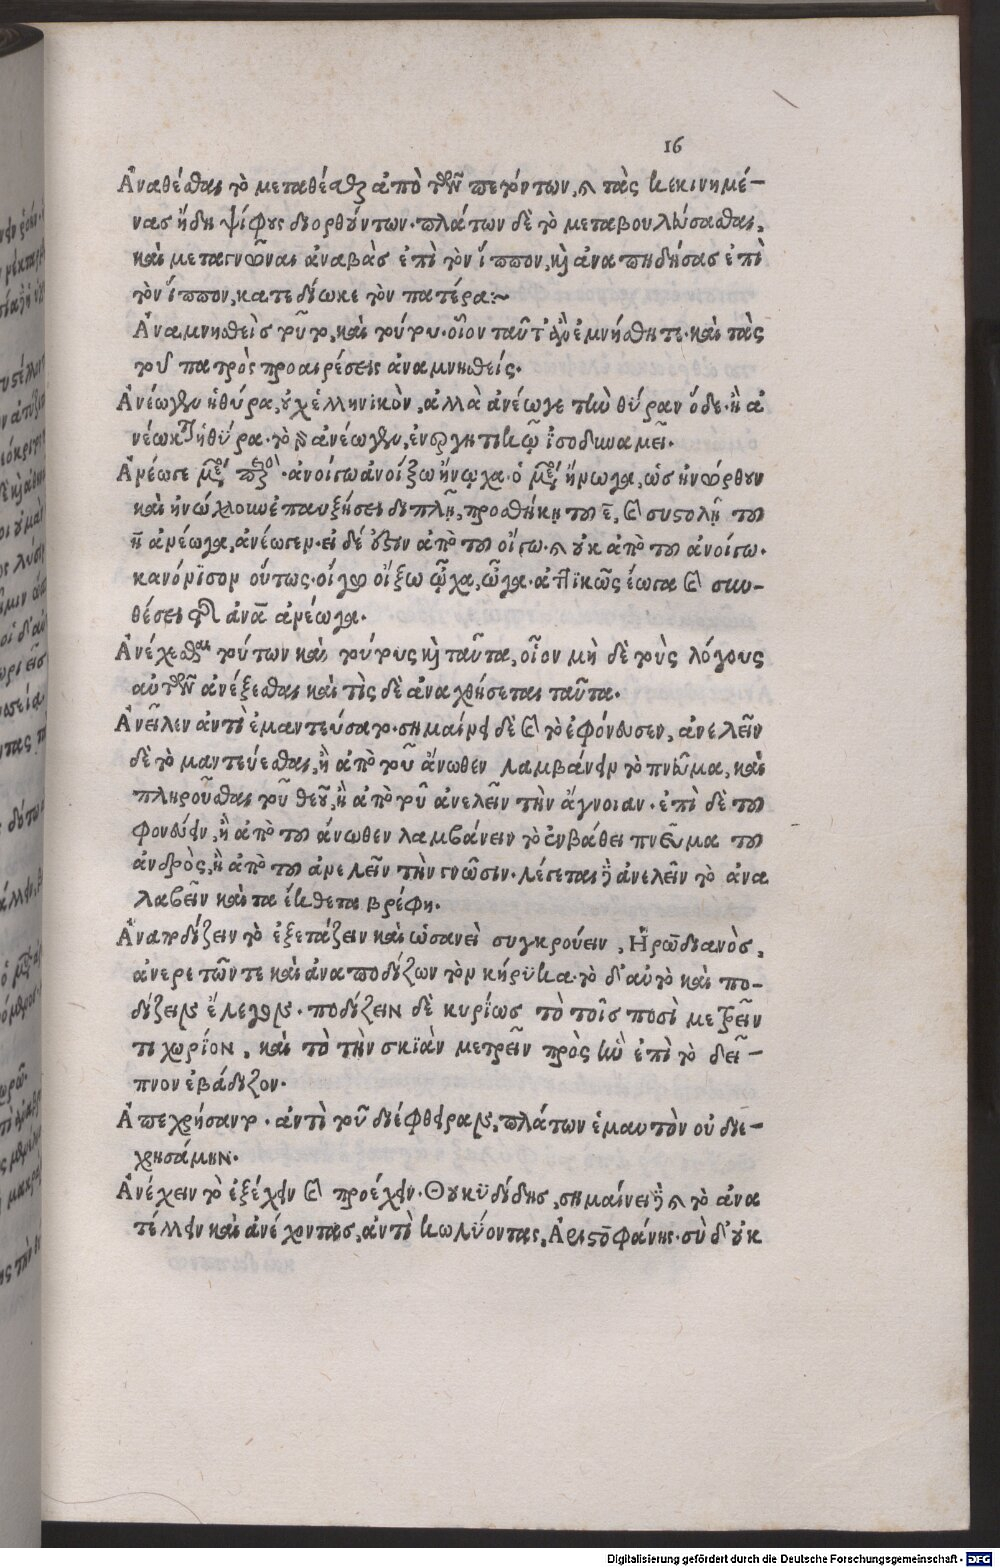 16
Ἀναθέσθαι τὸ μεταθέσθαι ἀπὸ τῶν πεττόντων, καὶ τὰς κεκινημέ-
νας ἤδη ψήφους διορθούντων. πλάτων δὲ τὸ μεταβουλεύσασθαι,
καὶ μεταγνῶναι ἀναβὰς ἐπὶ τὸν ἵππον, καὶ ἀναπηδήσας ἐπὶ
τὸν ἵππον, κατεδίωκε τὸν πατέρα:~
Ἀναμνησθεὶς τοῦτο, καὶ τούτου. οἷον ταῦτ' ἀνεμνήσθητε. καὶ τὰς
τοῦ πατρὸς προαιρέσεις ἀναμνησθείς.
Ἀνέωγεν ἡ θύρα, οὐχ ἑλληνικὸν, ἀλλὰ ἀνέωγε τὴν θύραν ὁ δε. ἢ ἀ
νέωκται ἡ θύρα. τὸ γὰρ ἀνέωγεν, ἐνεργητικῷ ἰσοδυναμεῖ.
Ἀνέωγε ἀνοίγω ἀνοίξω ἤνῳχα. ὁ ἤνωγα, ὡς ἠνώρθουν
καὶ ἠνώχλουν ἐπαυξήσει διπλῇ, προσθήκῃ τοῦ ε, καὶ συστολῇ τοῦ
η ἀνέωγα, ἀνέωγεν. εἰ δέ ἀπὸ τοῦ οἴγω. καὶ οὐκ ἀπὸ τοῦ ἀνοίγω.
κανόνισον οὕτως. οἴγω οἴξω ᾦχα, ᾦγα. ἀττικῶς ἔωγα καὶ συν-
θέσει ἀνέωγα.
Ἀνέχεσθαι τούτων καὶ τούτους καὶ ταῦτα, οἷον μὴ δὲ τοὺς λόγους
αὐτῶν ἀνέξεσθαι καὶ τὶς δὲ ἀνασχήσεται ταῦτα.
Ἀνεῖλεν ἀντὶ ἐμαντεύσατο. σημαίνει δὲ καὶ τὸ ἐφόνευσεν, ἀνελεῖν
δὲ τὸ μαντεύεσθαι, ἢ ἀπὸ τοῦ ἄνωθεν λαμβάνειν τὸ πνεῦμα, καὶ
πληροῦσθαι τοῦ θεοῦ, ἢ ἀπὸ τοῦ ἀνελεῖν τὴν ἄγνοιαν. ἐπὶ δὲ τοῦ
φονεύειν, ἢ ἀπὸ τοῦ ἄνωθεν λαμβάνειν τὸ ἐν βάθει πνεῦμα τοῦ
ἀνδρὸς, ἢ ἀπὸ τοῦ ἀνελεῖν τὴν γνῶσιν. λέγεται καὶ ἀνελεῖν τὸ ἀνα
λαβεῖν καὶ τα ἔκθετα βρέφη.
τὸ ἐξετάζειν καὶ ὡσανεὶ συγκρούειν, Ἡρωδιανὸς,
ἀνερετῶν τε καὶ ἀναποδίζων τὸν κήρυκα. τὸ δ' αὐτὸ καὶ πο-
δίζειν ἔλεγον. ποδίζειν δὲ κυρίως τὸ τοῖς ποσὶ μετρεῖν
τι χωρίον, καὶ τὸ τὴν σκιὰν μετρεῖν πρὸς ἣν ἐπὶ τὸ δεῖ-
πνον ἐβάδιζον.
Ἀπεχρήσαντο. ἀντὶ τοῦ διέφθειραν, πλάτων ἐμαυτὸν οὐ διε-
χρησάμην.
Ἀνέχειν τὸ ἐξέχειν καὶ προέχειν. Θουκυδίδης, σημαίνει καὶ τὸ ἀνα
τέλλειν καὶ ἀνέχοντας, ἀντὶ κωλύοντας, Ἀριστοφάνης. σὺ δ' οὐκ
Digitalisierung gefördert durch die Deutsche Forschungsgemeinschaft - DFG